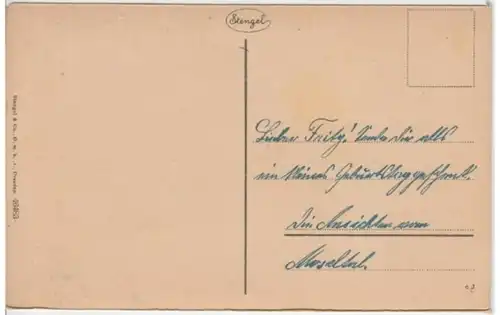 Stengel
Stengel & Co., G. m. b. H., Dresden
Lieber Fritz! Sende Dir als
ein kleines Geburtstagsgeschenk
Die Ansichten vom
Moseltal.